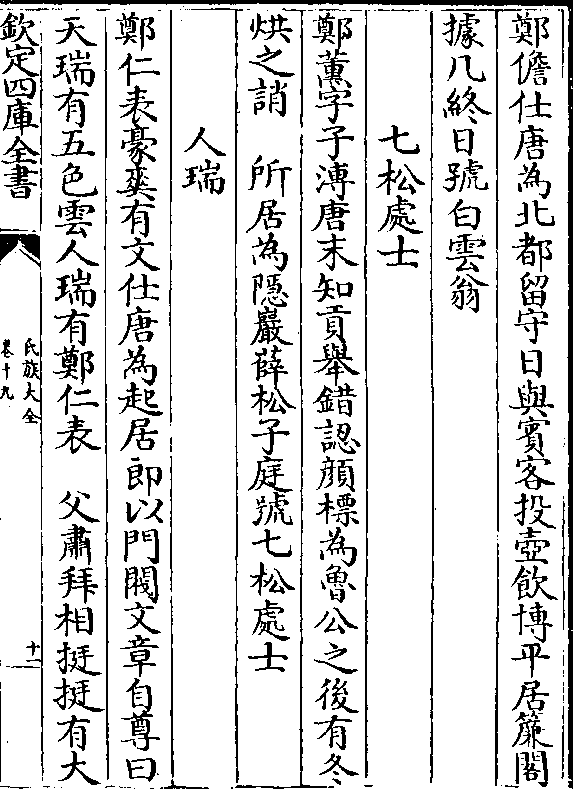 鄭儋仕唐為北都留守日與賓客投壺飲博平居簾閣
據几終日號白雲翁
七松處士
鄭薰字子溥唐末知貢舉錯認顔標為魯公之後有冬
烘之誚　所居為隠巖薛松于庭號七松處士
人瑞
鄭仁表豪爽有文仕唐為起居郎以門閥文章自尊曰
天瑞有五色雲人瑞有鄭仁表　父肅拜相挺挺有大
欽定四庫全書
氏族大全
卷十九
十一